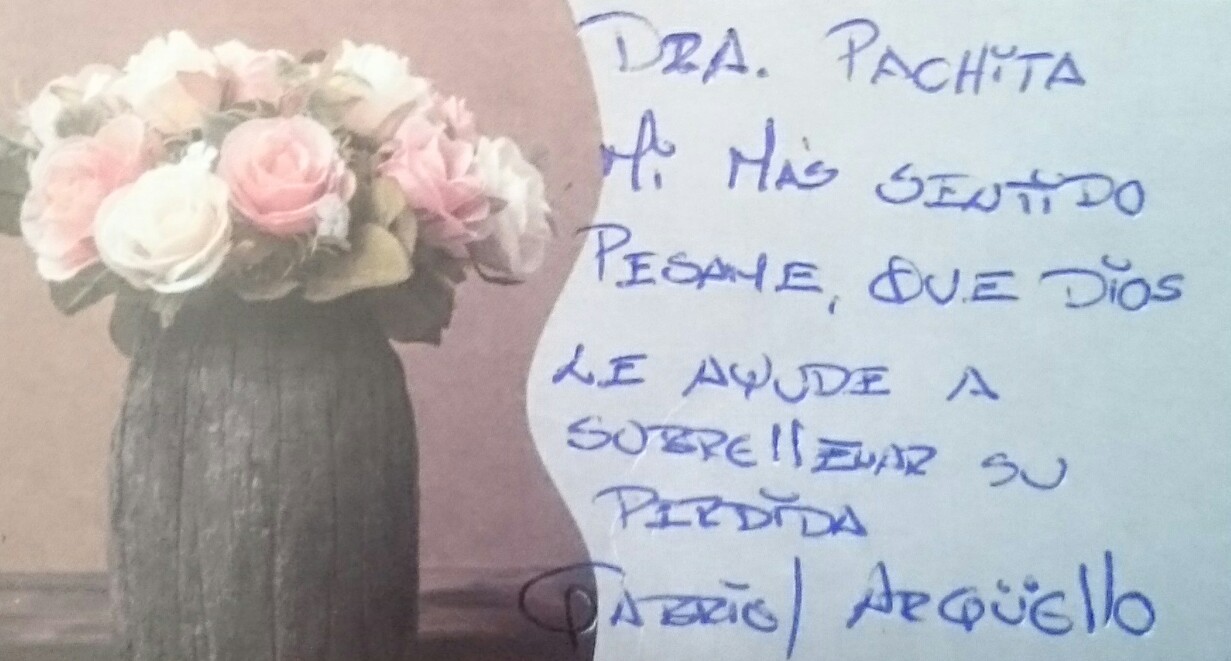 DRA. PACHITA
Mi MÁS SENTIDO
PESAME, QUE DIOS
LE AYUDE A
SOBRELLEVAR SU
PERDIDA
GABRIEL ARGÜELLO